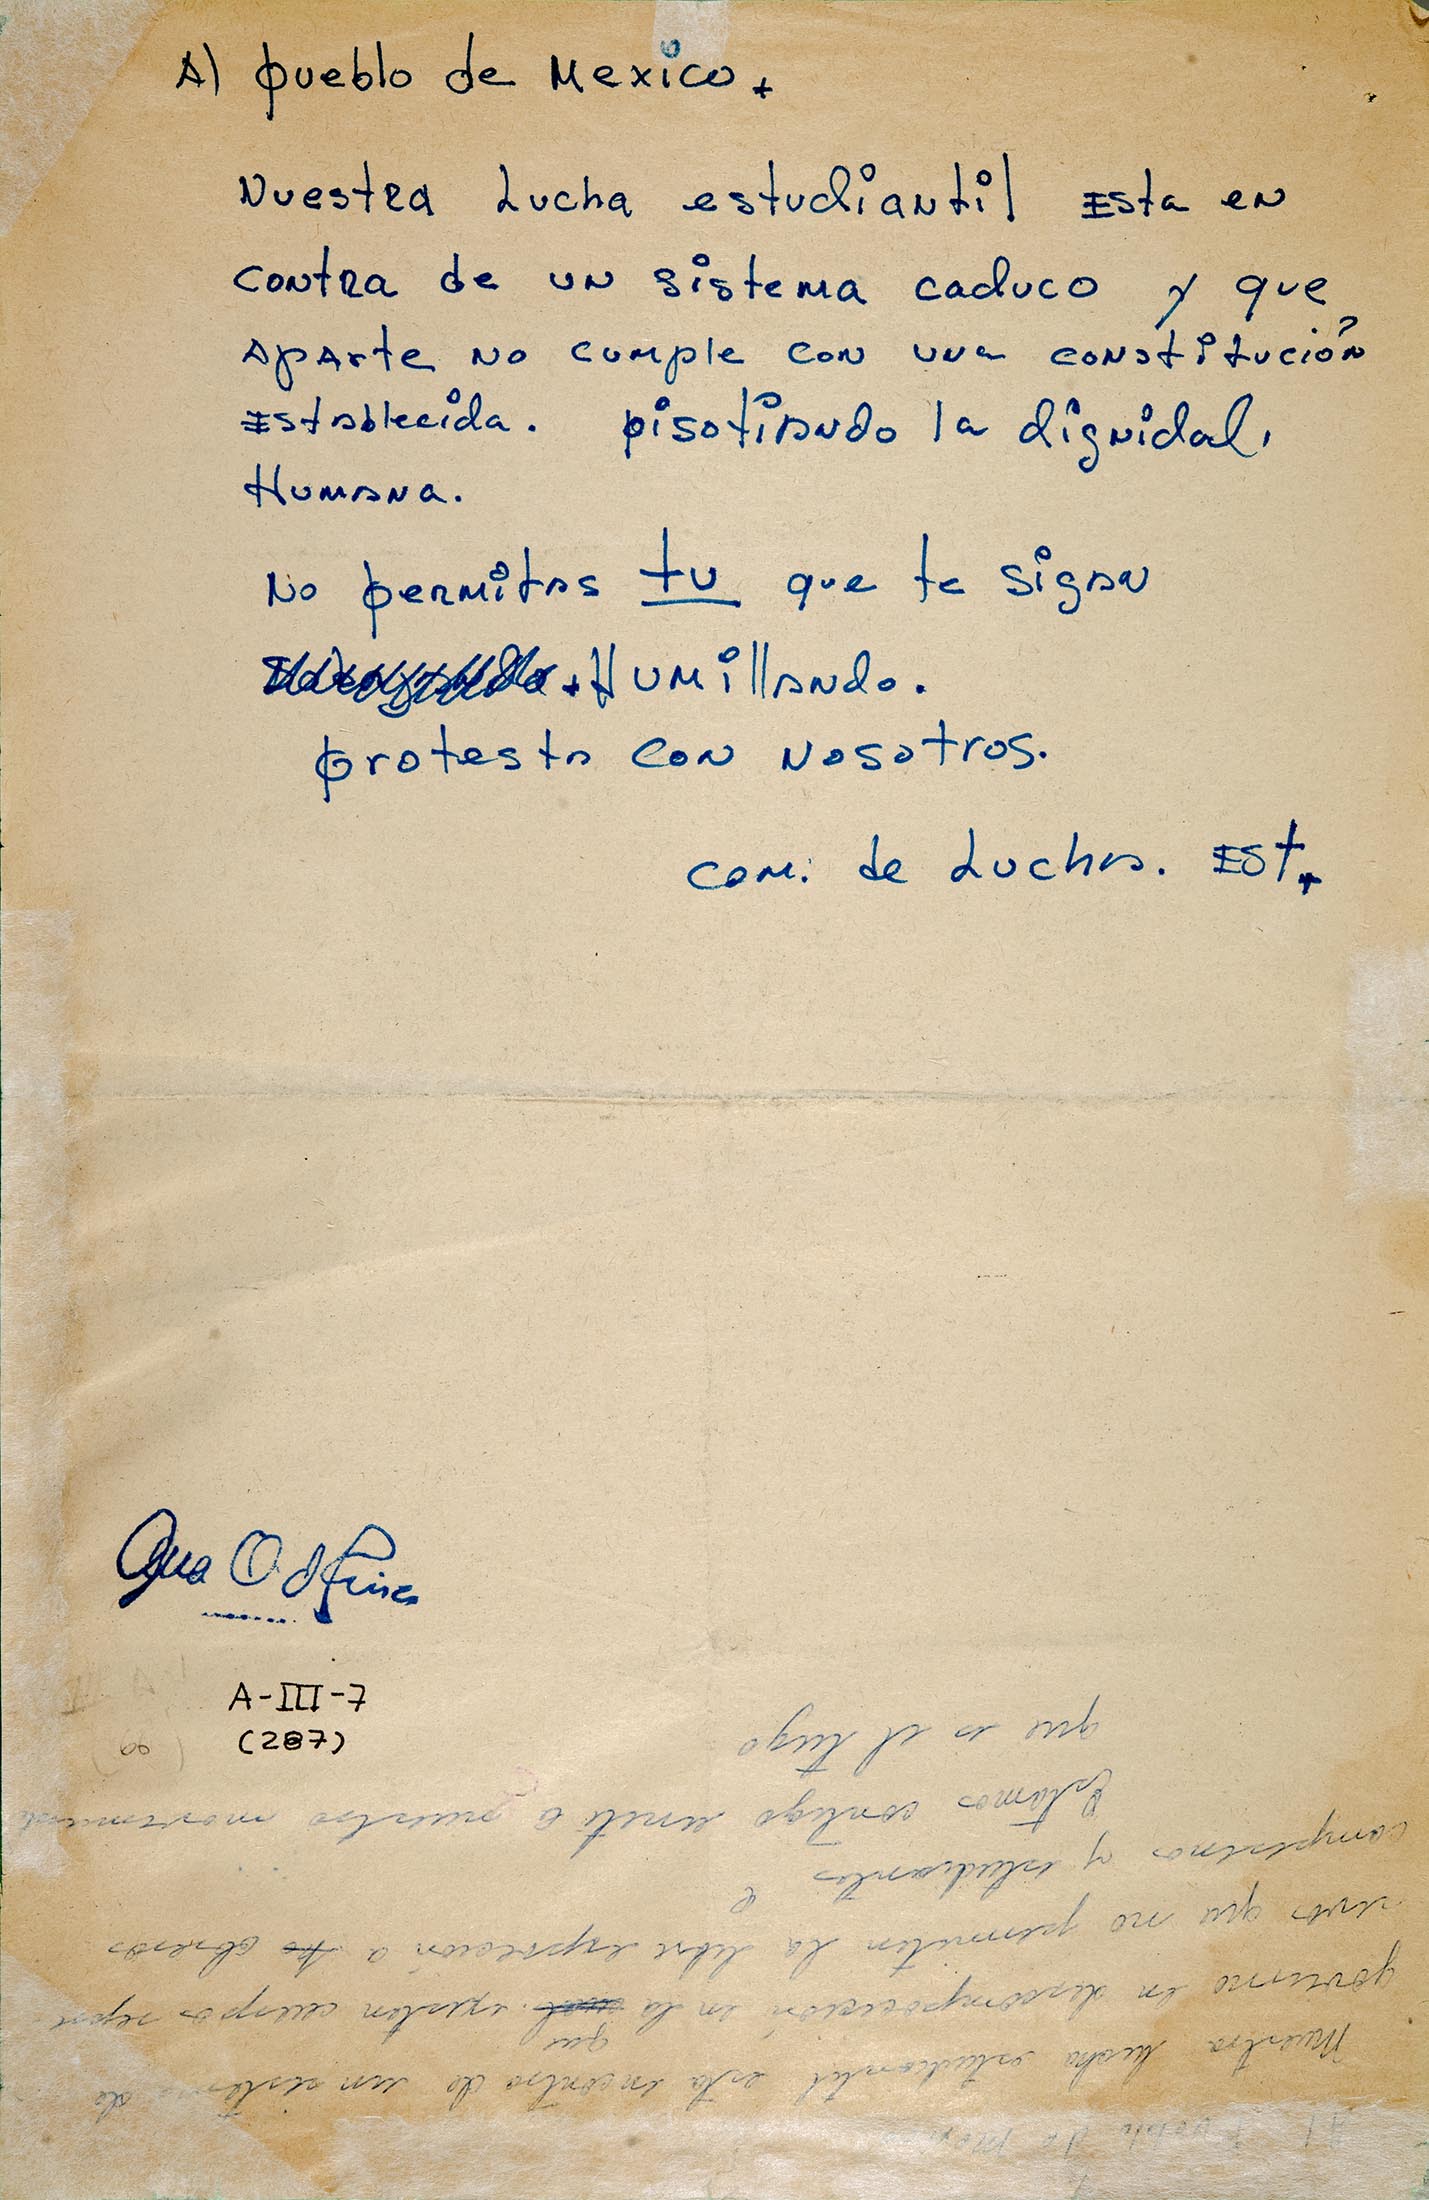 Al pueblo de Mexico.
Nuestra Lucha estudiantil Esta en
contra de un sistema caduco y que
aparte no cumple con una constitución
Establecida. pisotiando la dignidad,
Humana.
No permitas tu que te sigan
Humillando.
protesta con nosotros.
Com. de Lucha. Est.
A-III-7
(287)
Al Pueblo de Mexico
Nuestra lucha estudiantil esta encontra de un sistema de
que
govierno en descomposición en la existen cuerpos repre
sivos que no permiten la libre expreción a obreros
campesinos y estudiantes
Estamos contigo unete a nuestro movimiento
que es el tuyo